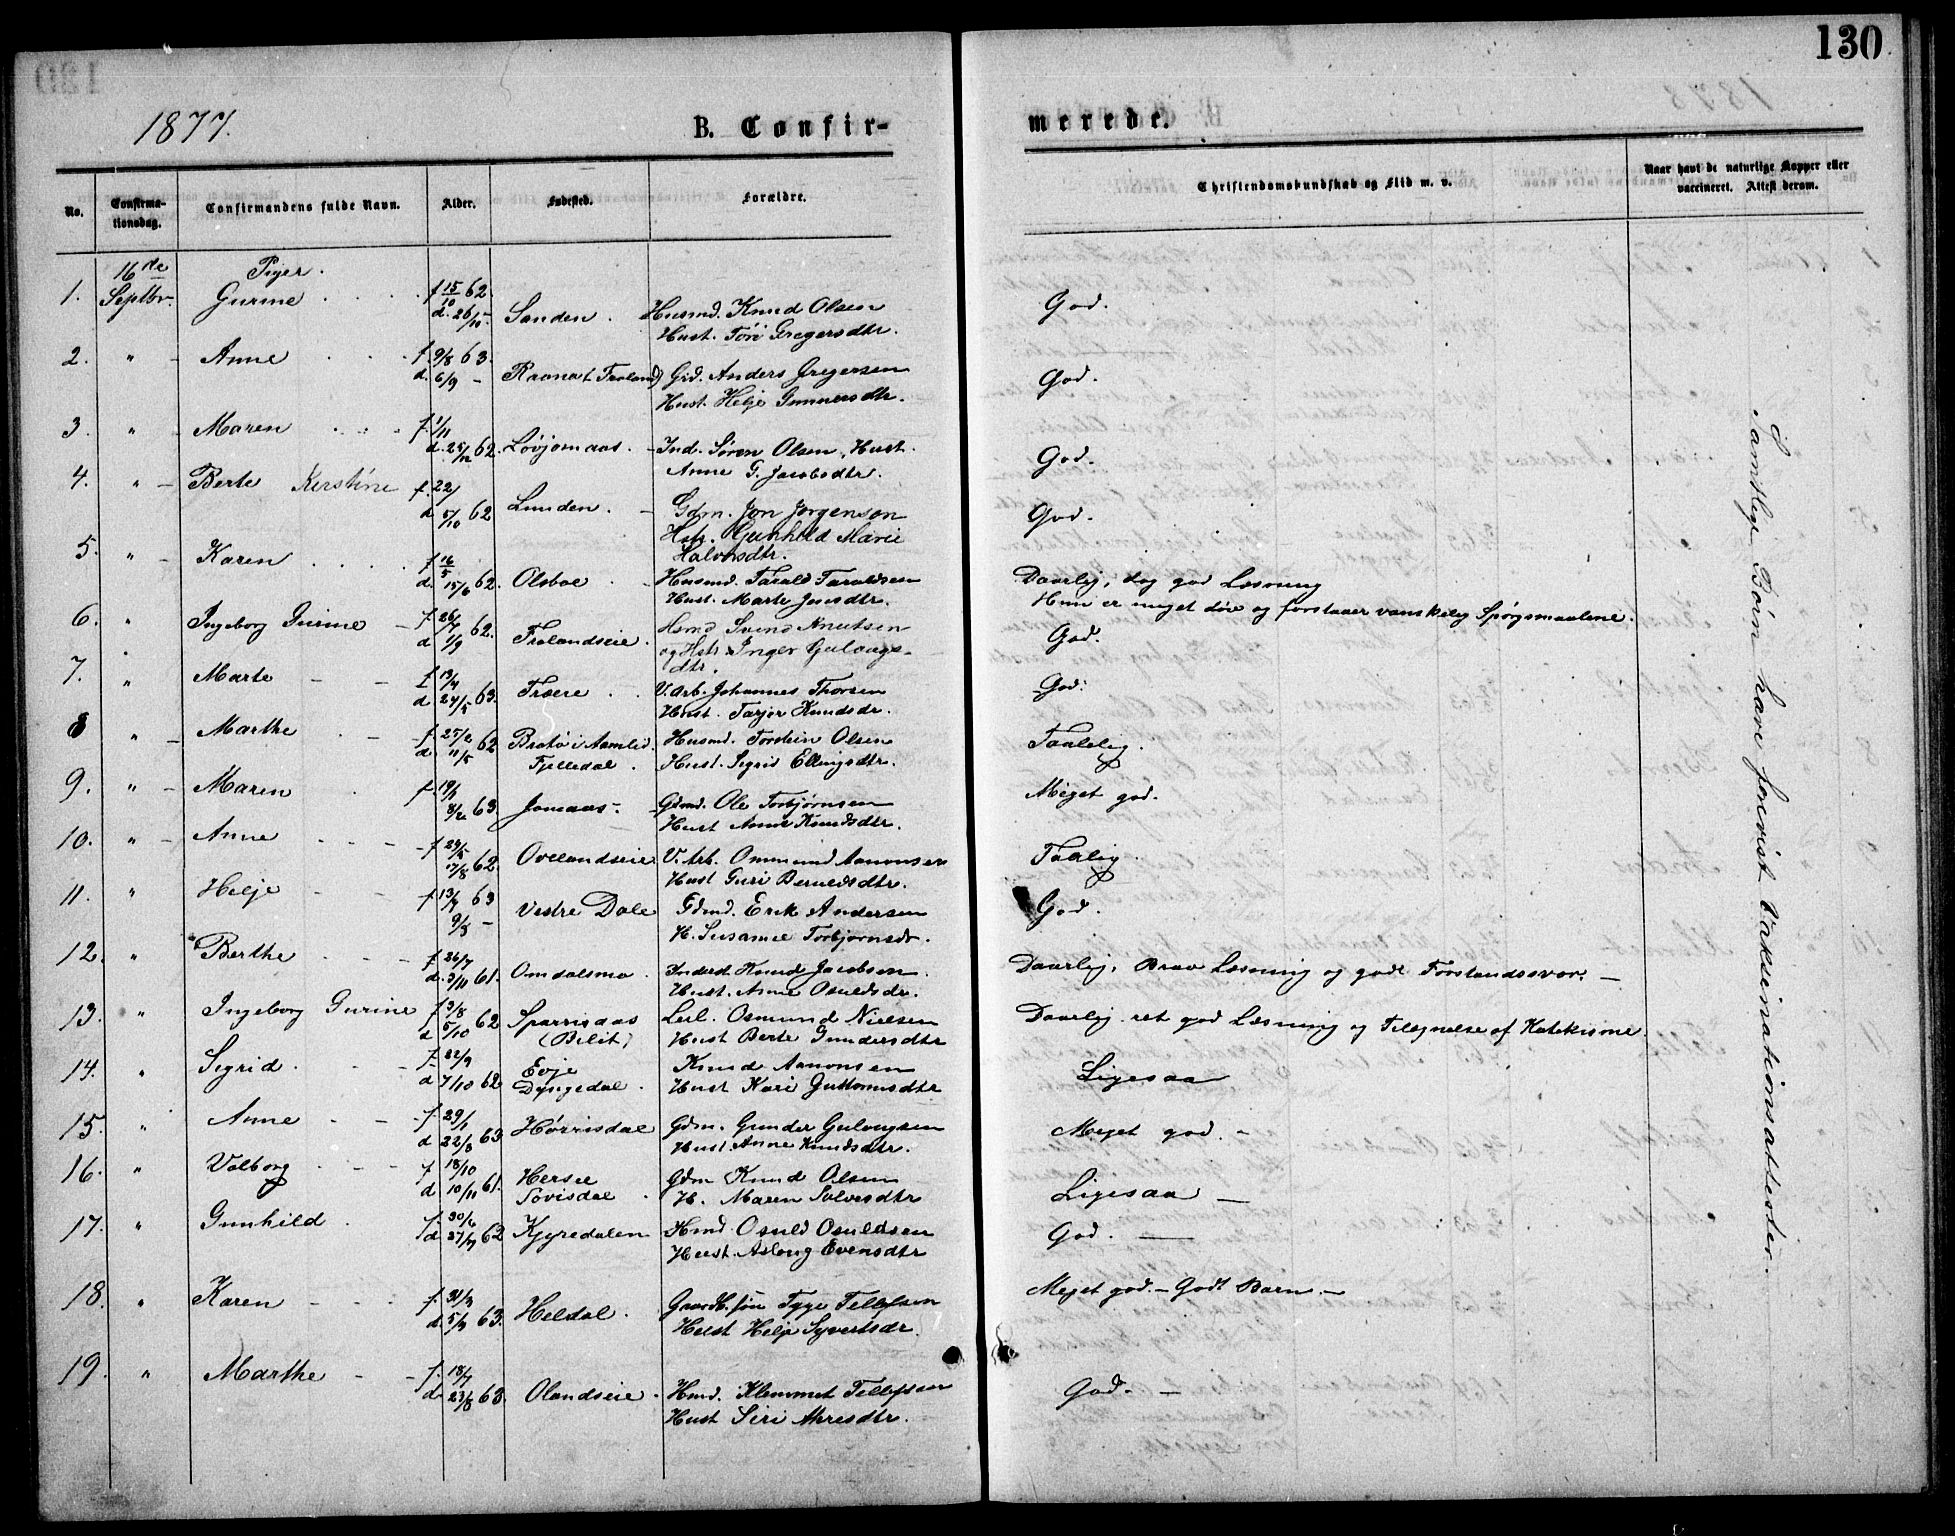 130
1877.
B. Confir-
merede.
No.
Confirma-
tionsdag.
Confirmandens fulde Navn.
Alder.
Fødested.
Forældre.
Christendomskundskab og Flid m. v.
Naar havt de naturlige Kopper eller
vaccineret. Attest derom.
16de Piger.
1. Septbr. Gurine f 15/10 62. d. 26/10 Sanden. Husmd. Knud Olsen God.
Hust. Tori Gregersdtr.
2. " Anne f. 9/8 63. d. 6/9 - Ravna(Froland) Grd. Anders Gregersen God.
Hust. Helje Gunnersdtr.
3. " Maren f 1/11 d. 25/12 62. Løvjomaas. Ind. Søren Olsen, Hust. God.
Anne G. Jacobsdtr.
4. " Berte Kerstine f. 22/ d 5/10 62 Lunden. Gdm. Jon Jorgenson God.
Hstr. Gunhild Marie
Halvorsdtr.
5. " Karen f 16/5 d. 15/6 62. Olsboe Husmd. Tarald Taraldsen Daarlig, dog god Læsning
Hust. Marte Jensdtr. Hun er meget døv og forstaaer vanskelig Spørgsmaalene.
6. " Ingeborg Gurine f 26/7 d 1/9 62. Frolandseie. Hsmd Svend Knutsen God.
og Hstr Inger Gulougs-
dtr.
7. " Marte f 13/4 d 24/5 63. Froere V. Arb. Johannes Thorsen God.
Hust. Tarjer Knudsdr.
8 " Marthe f 25/2 d. 11/5 62 Brotø i Aamlid. Husmd. Torstein Olsen Taalelig.
Fjelledal. Hust. Sigrid Ellingsdtr.
9. " Maren f 19/1 8/2 63. Jomaas - Gdmd. Ole Torbjørnsen Meget god.
Hust Anne Knudsdtr.
10. " Anne f 24/5 17/8 62. Ovelandseie V. Arb. Ommund Aanonsen Taalelig
Hust Guri Beruldsdtr.
11. " Helje f 13/7 63 9/8 - Vestre Dale Gdmd. Erik Andersen God.
H. Susanne Torbjornsdr.
12. " Berthe f 26/7 d. 3/11 61. Omdalsmo. Inderst Knud Jacobsen. Daarlig, Brav Læsning og godt Forstandssvar. -
Hust. Anne Osuldsdr.
13. " Ingeborg Gurine f 3/8 d 5/10 62 Sparrisdas Leil. Osmund Nielsen Daarlig. ret god Læsning og Tilegnelse af Katekisme
(Belit) Hust Berte Gundersdtr
14. " Sigrid f 22/9 d 7/10 62 Evje Knud Aanonsen Ligesaa
Dyngedal. Hust Kari Guttormsdtr
15. " Anne f. 29/1 d 22/3 63 Hørrisdal Gdm. Gunder Gulougsen Meget god. -
Hust. Anne Knudsdtr.
16. " Valborg f 18/10 d 10/11 61. Hersee Gdm Knud Olsen Ligesaa
Sovisdal. H. Maren Solvesdtr
17. " Gunhild. f. 30/6 d 27/7 62 Kjyredalen Hmd Osuld Osuldsen God.
Hust. Asloug Evensdtr
18. " Karen f. 31/3 d. 5/7 63. Heldal. Gaardb. søn Tyge Tellefsen Meget god. - Godt Barn -
Hust Helje Syvertsdr.
19. " Marthe f. 18/7 d. 23/8 63. Olandseie. Hmd. Klemmet Tellefsen God. -
Hust Siri Aanesdtr.
Samtlige Børn have forevist Vaksinationsattester.